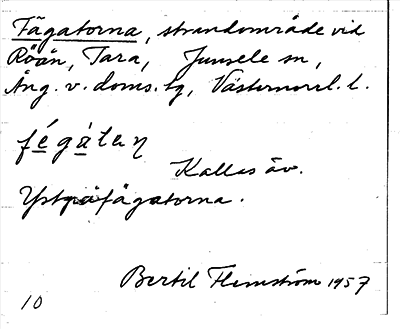 Fägatorna, strandområde vid
Röån, Tara, Junsele sn,
Ång. v. doms. tg, Västernorrl. l.
fégàtaɳ
Kallas äv.
Ystpåfägatorna.
Bertil Flemström 1957
10